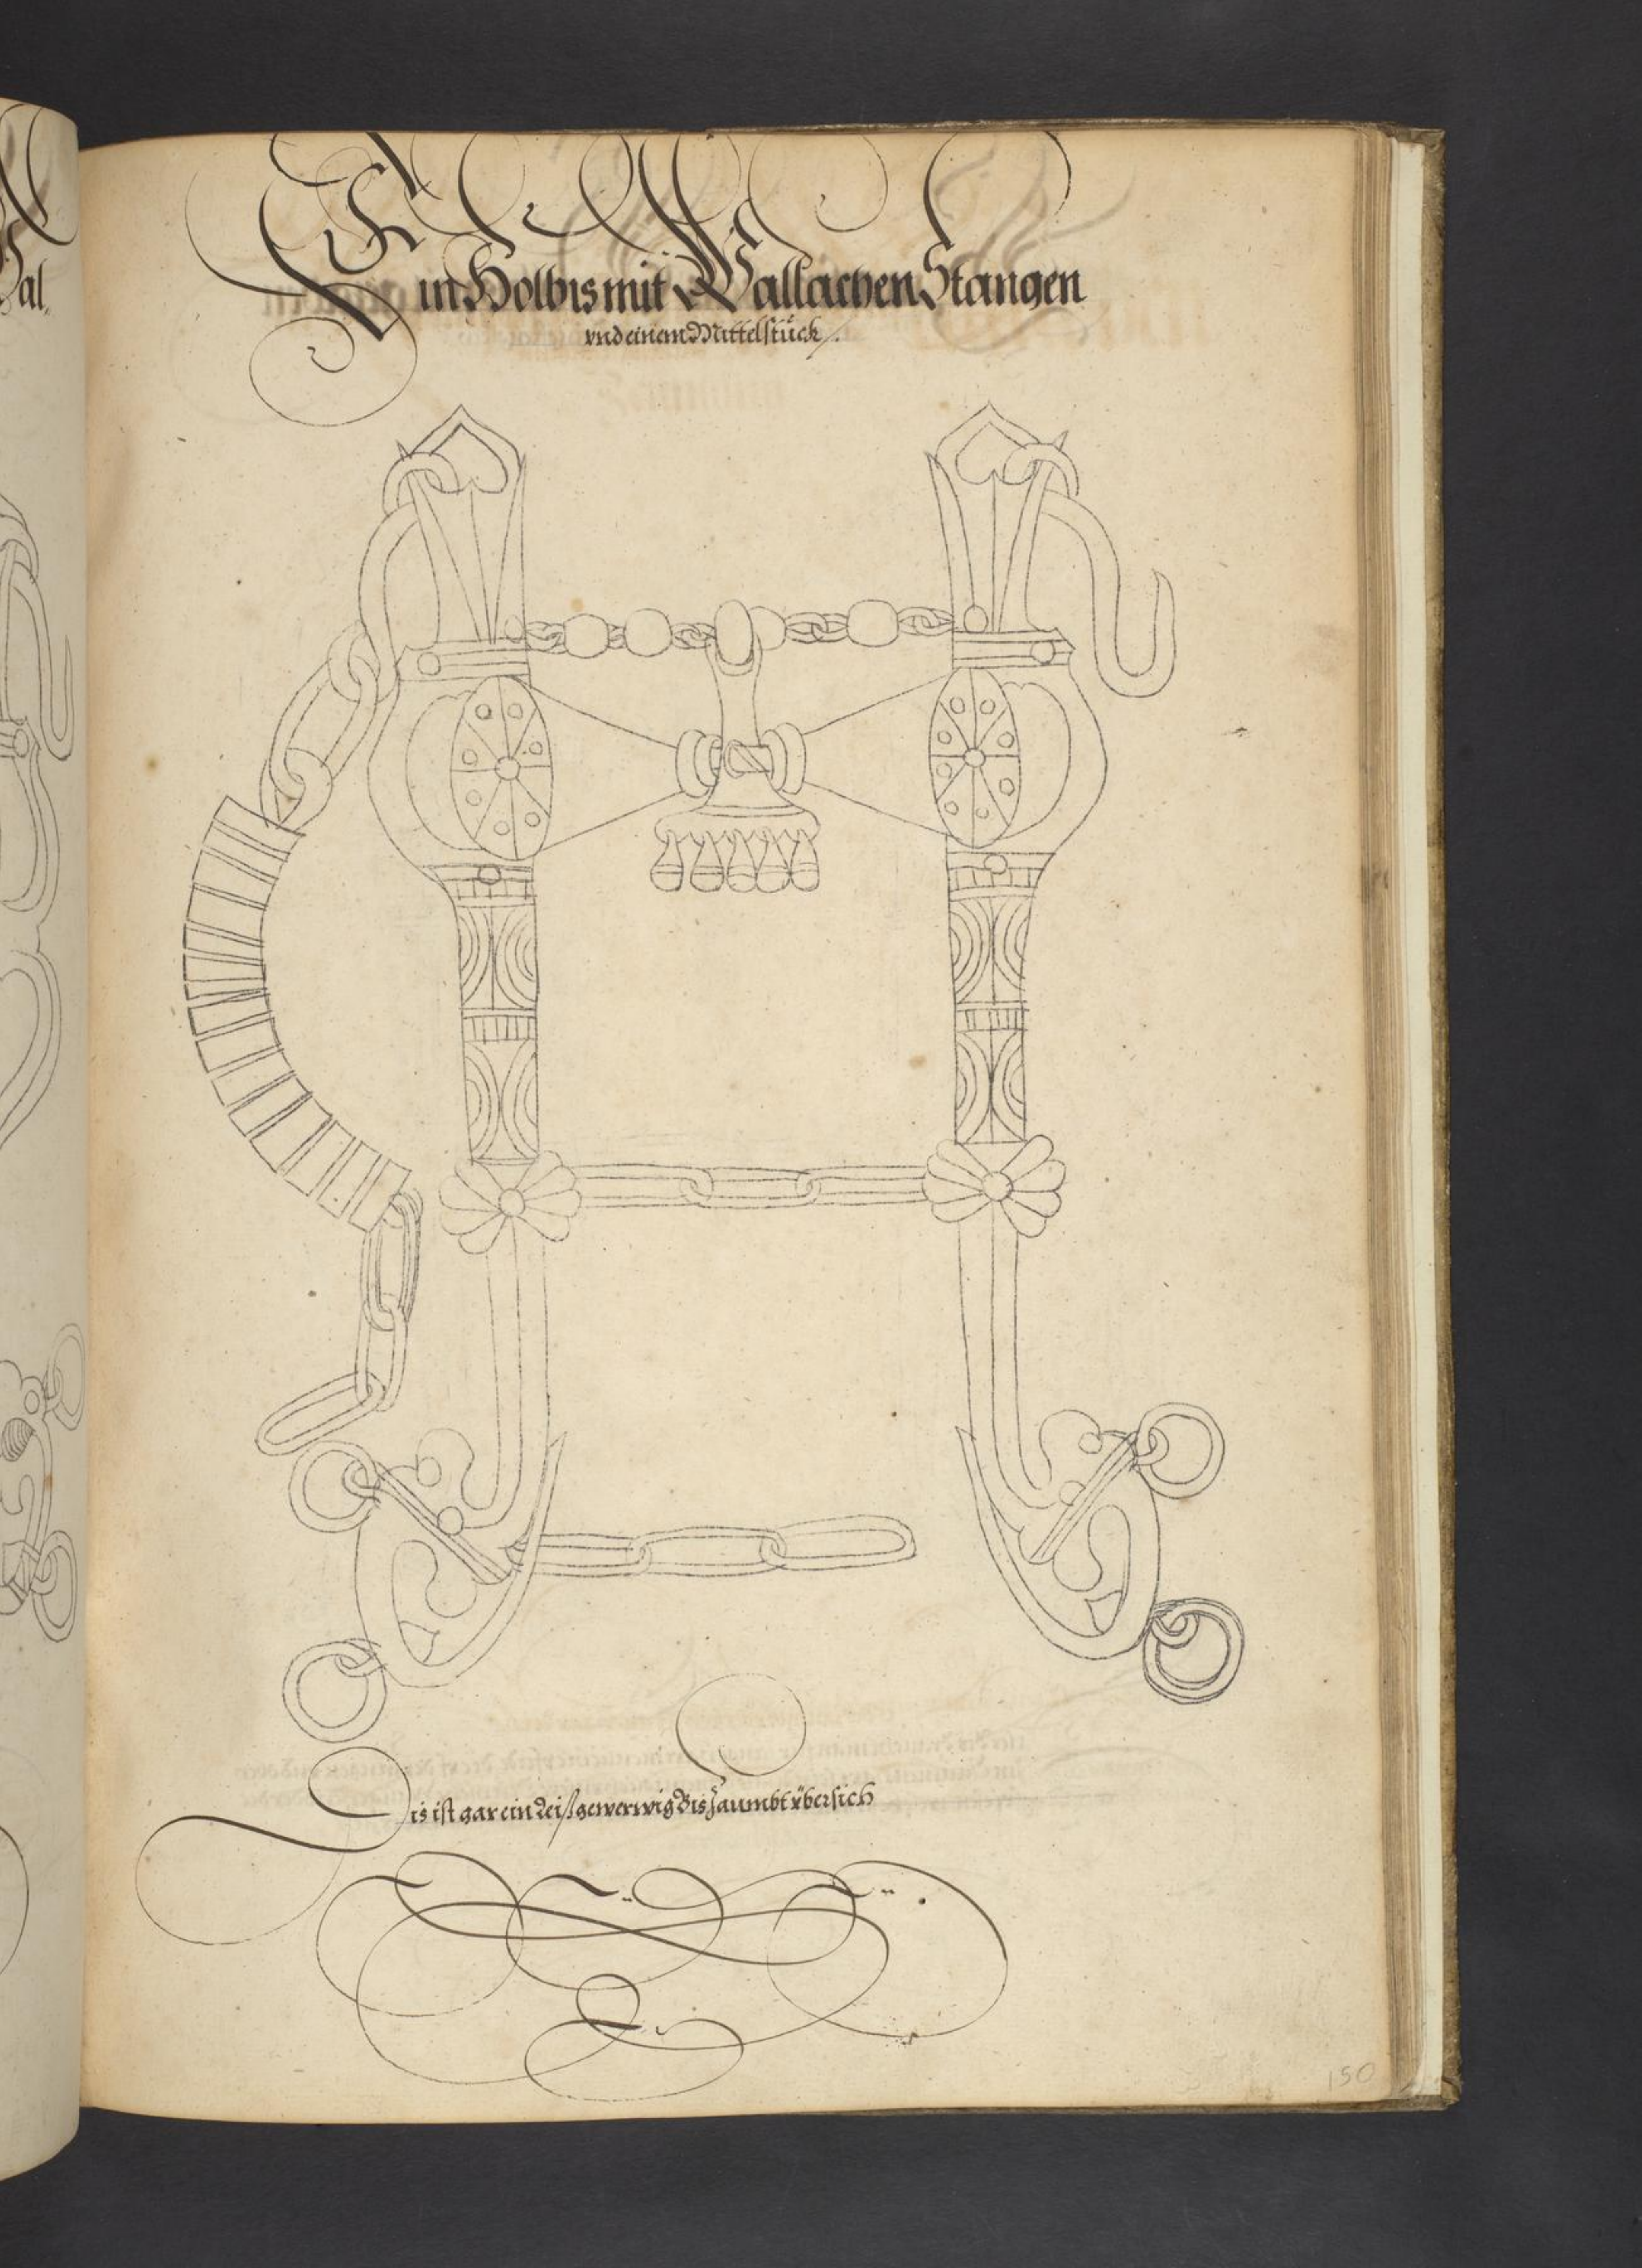 al,
Ein Holbis mit Wallachen Stangen
vnd einem Mittelstück/.
Dis ist gar ein Reiß gewerwig Bis Zaumbt vbersich
150